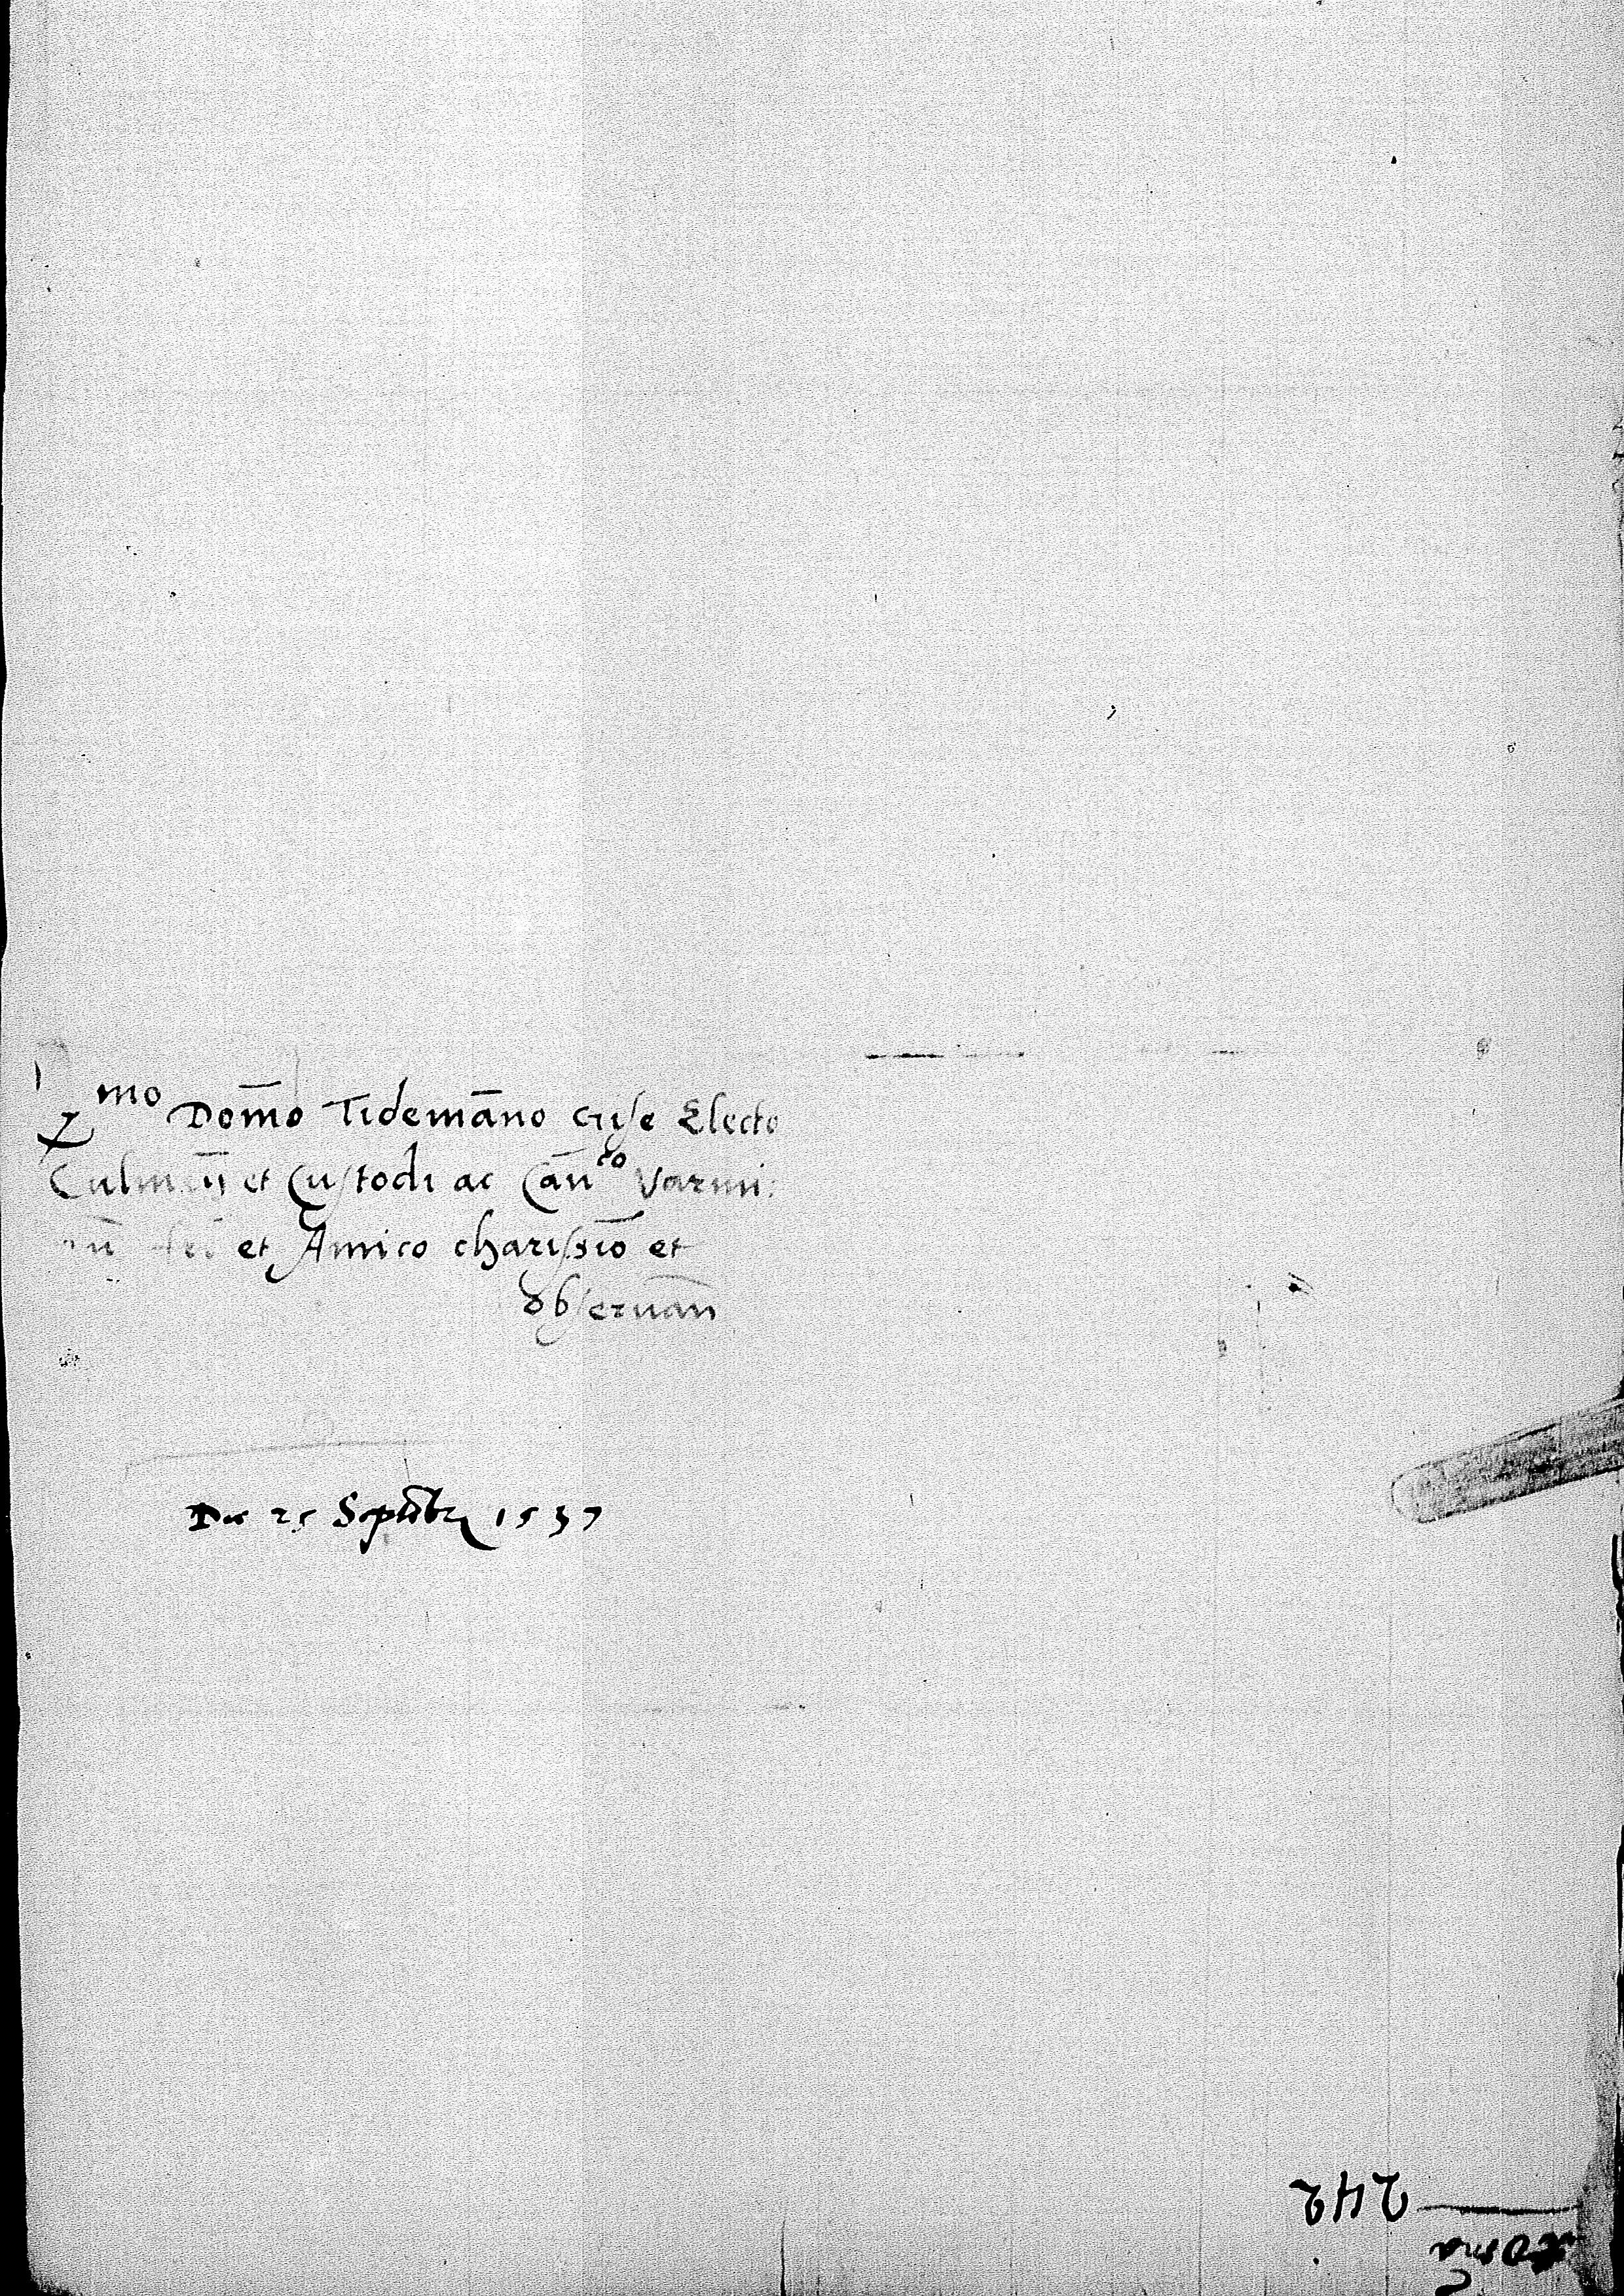 R mo Dom̄o Tidemāno Gise Electo
Culm et Custodi ac Can̄co Varmi:
et Amico charissīo et
obseruan̄
Dat 25 Septēbr 1537
242